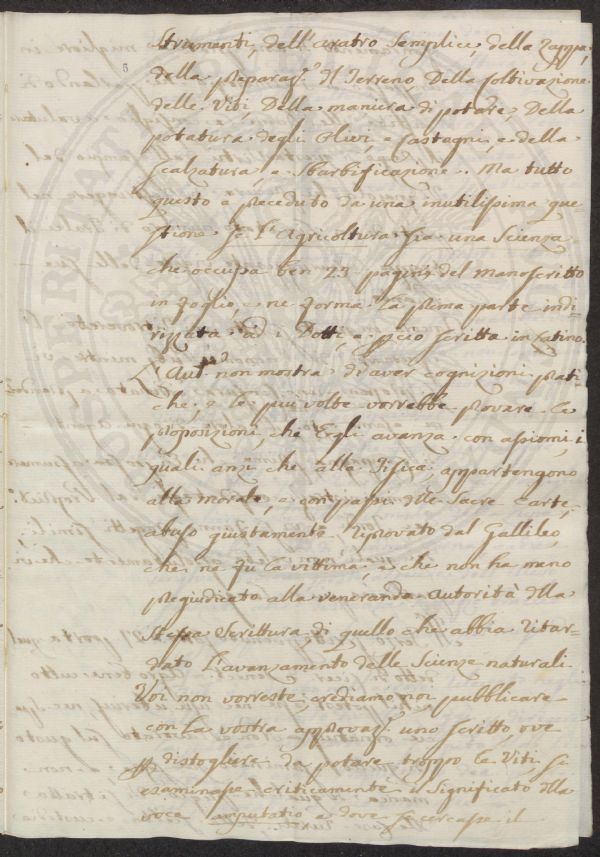 Strumenti, dell'aratro semplice, della zappa,
della preparaz.e del Terreno, Della Coltivazione
delle Viti, Della maniera di potare, Della
potatura degli Olivi, e Castagni, e della
Scalzatura e Sbarbificazione. Ma tutto
questo è preceduto da una inutilissima que-
stione se l'Agricoltura sia una Scienza
che occupa ben 23 pagine del manoscritto
in foglio, e ne forma la prima parte indi-
rizzata ad i Dotti e p.ciò scritta in Latino.
L'Aut.e non mostra di aver cognizioni prati
che, e le più volte vorrebbe provare le
proposizioni, che Egli avanza con assiomi, i
quali anzi che alla Fisica, appartengono
alla morale, e con passi delle Sacre Carte,
abuso giustamente riprovato dal Gallileo,
che ne fu la vittima, e che non ha meno
pregiudicato alla veneranda autorità della
stessa Scrittura di quello che abbia ritar-
dato l'avanzamento delle Scienze naturali.
Voi non vorreste, crediamo noi, pubblicare
con la vostra approvaz.e uno scritto, ove
p distogliere da potare troppo le Viti, si
esaminasse criticamente il significato della
voce amputatio e dove si cercasse il